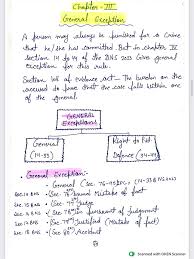 Chapter - III
General Exception
A person may always be punished for a crime
that he/she has committed. But in chapter IV
section 14 to 44 of the BNS 2023 Give general
exception for this rule.
Section 105 of evidence act - The burden on the
accused to prove that the case falls within one
of the general
GENERAL
Exceptions
General
(14-33)
Right to Pvt.
Defence (34-44)
General Exception:-
General (Sec 76-95 IPC)
Sec 14 BNS - Sec 76th Mistake of fact
Sec 15 BNS - Sec 77th Judge
Sec 16 BNS - Sec 78th In pursuant of judgment
Sec 17 BNS - Sec 79th Justified (Mistake of fact)
Sec 18 BNS - Sec 80th Accident
Scanned with OKEN Scanner